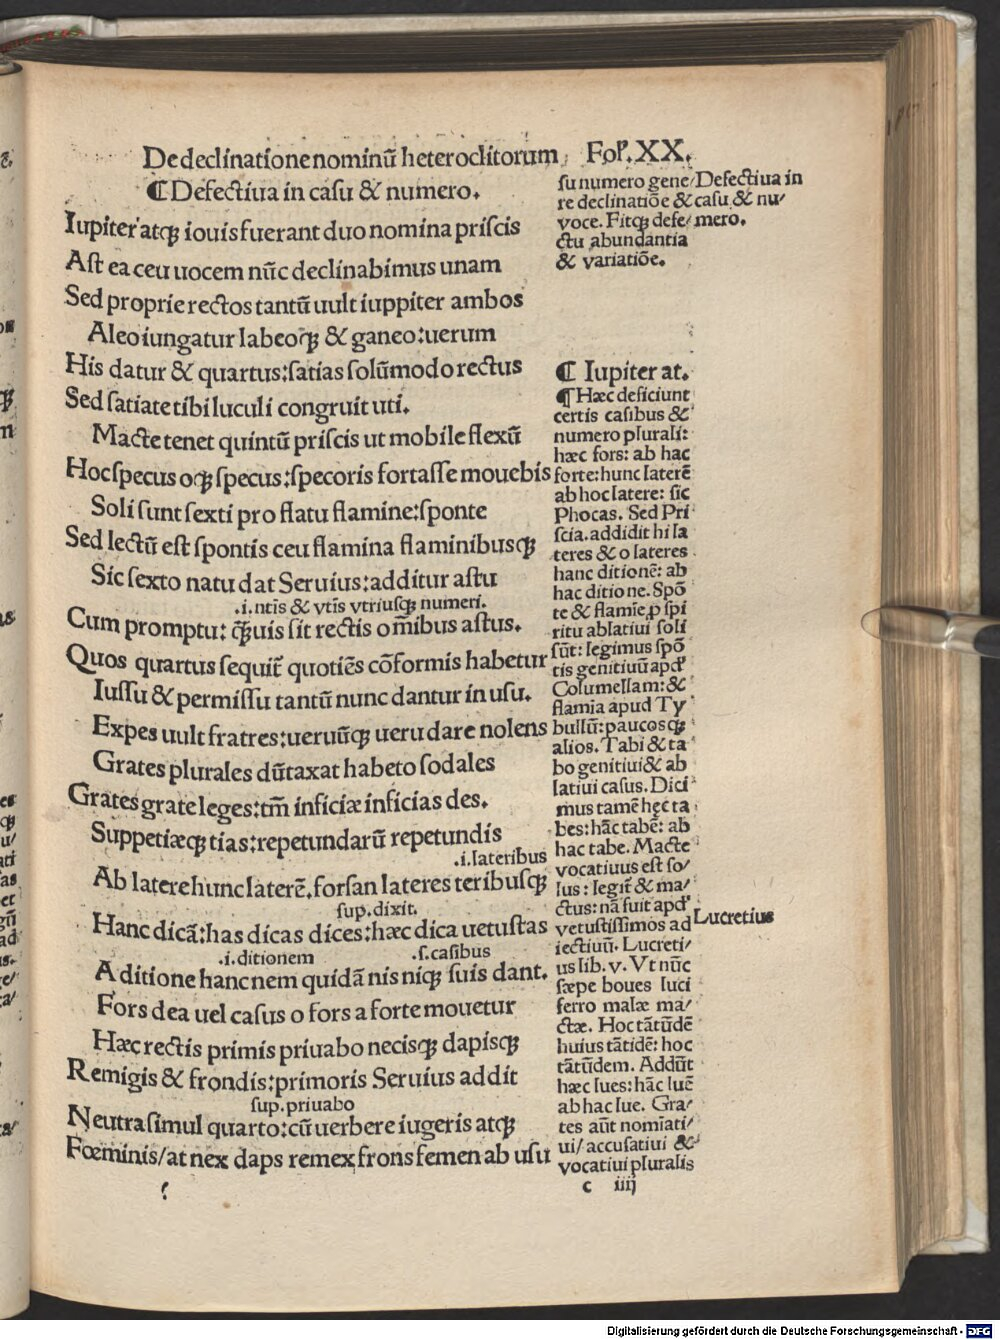 De declinatione nominū heteroclitorum Fol. XX.
¶ Defectiua in casu & numero.
Iupiter atqꝫ iouis fuerant duo nomina priscis
Ast ea ceu uocem nūc declinabimus unam
Sed proprie rectos tantū uult iuppiter ambos
Aleo iungatur labeoqꝫ & ganeo: uerum
His datur & quartus: satias solūmodo rectus
Sed satiate tibi luculi congruit uti.
Macte tenet quintū priscis ut mobile flexū
Hoc specus oqꝫ specus: specoris fortasse mouebis
Soli sunt sexti pro flatu flamine: sponte
Sed lectū est spontis ceu flamina flaminibusqꝫ
Sic sexto natu dat Seruius: additur astu
.i. ntīs & vtīs vtriusqꝫ numeri.
Cum promptu: qꝫuis sit rectis om̄ibus astus.
Quos quartus sequit̄ quotiēs cōformis habetur
Iussu & permissu tantū nunc dantur in usu.
Expes uult fratres: ueruūqꝫ ueru dare nolens
Grates plurales dūtaxat habeto sodales
Grates grate leges: tm̄ inficiæ inficias des.
Suppetiæqꝫ tias: repetundarū repetundis
.i. lateribus
Ab latere hunc laterē, forsan lateres teribusqꝫ
sup. dixit.
Hanc dicā: has dicas dices: hæc dica uetustas
.i. ditionem .s. casibus
A ditione hanc nem quidā nis niqꝫ suis dant.
Fors dea uel casus o fors a forte mouetur
Hæc rectis primis priuabo necisqꝫ dapisqꝫ
Remigis & frondis: primoris Seruius addit
sup. priuabo
Neutra simul quarto: cū uerbere iugeris atqꝫ
Fœminis/ at nex daps remex frons femen ab usu
su numero gene/
re declinatiōe &
voce. Fitqꝫ defe/
ctu abundantia
& variatiōe.
Defectiua in
casu & nu/
mero.
¶ Iupiter at.
¶ Hæc deficiunt
certis casibus &
numero plurali:
hæc fors: ab hac
forte: hunc laterē
ab hoc latere: sic
Phocas. Sed Pri
scia. addidit hi la
teres & o lateres
hanc ditionē: ab
hac ditione. Spō
te & flamīe, p spi
ritu ablatiui soli
sūt: legimus spō
tis genitiuū apd'
Columellam: &
flamia apud Ty
bullū: paucosqꝫ
alios. Tabi & ta
bo genitiui & ab
latiui casus. Dici
mus tamē hęc ta
bes: hāc tabē: ab
hac tabe. Macte
vocatiuus est so/
lus: legit̄ & ma/
ctus: nā fuit apd'
vetustissimos ad
iectiuū. Lucreti/
us lib. v. Vt nūc
sæpe boues luci
ferro malæ ma/
ctæ. Hoc tātūdē
huius tātīdē: hoc
tātūdem. Addūt
hæc lues: hāc luē
ab hac lue. Gra/
tes aūt nomīati/
ui/ accusatiui &
vocatiui pluralis
Lucretius
c iiij
Digitalisierung gefördert durch die Deutsche Forschungsgemeinschaft - DFG